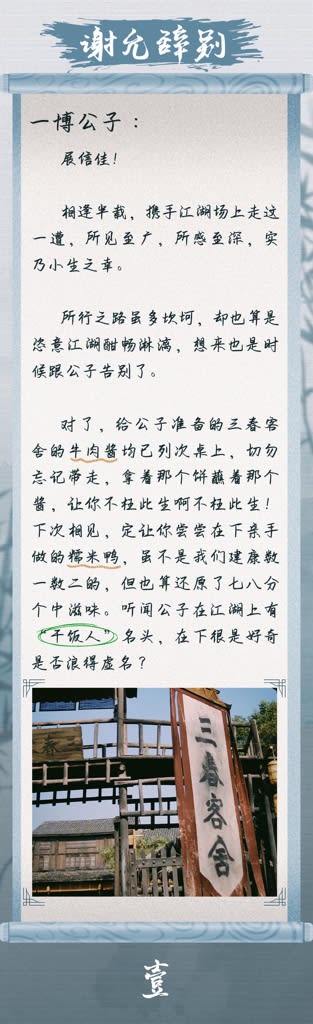 谢允辞别
一博公子：
展信佳！
相逢半载，携手江湖场上走这
一遭，所见至广，所感至深，实
乃小生之幸。
所行之路虽多坎坷，却也算是
恣意江湖酣畅淋漓，想来也是时
候跟公子告别了。
对了，给公子准备的三春客
舍的牛肉酱均已列次桌上，切勿
忘记带走，拿着那个饼蘸着那个
酱，让你不枉此生啊不枉此生！
下次相见，定让你尝尝在下亲手
做的糯米鸭，虽不是我们建康数
一数二的，但也算还原了七八分
个中滋味。听闻公子在江湖上有
“干饭人”名头，在下很是好奇
是否浪得虚名？
春
三春客舍
壹